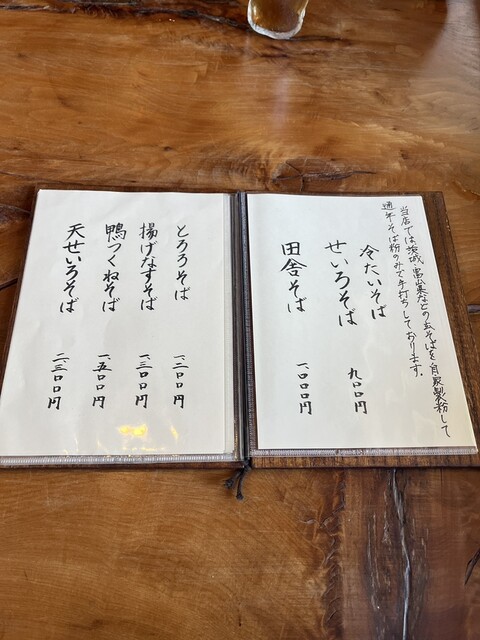 当店では、茨城、富山県などの玄そばを自家製粉して
通年そば粉のみで手打ちしております。
冷たいそば
せいろそば 九〇〇円
田舎そば 一、〇〇〇円
とろろそば 一、二〇〇円
揚げなすそば 一、三〇〇円
鴨つくねそば 一、五〇〇円
天せいろそば 二、三〇〇円